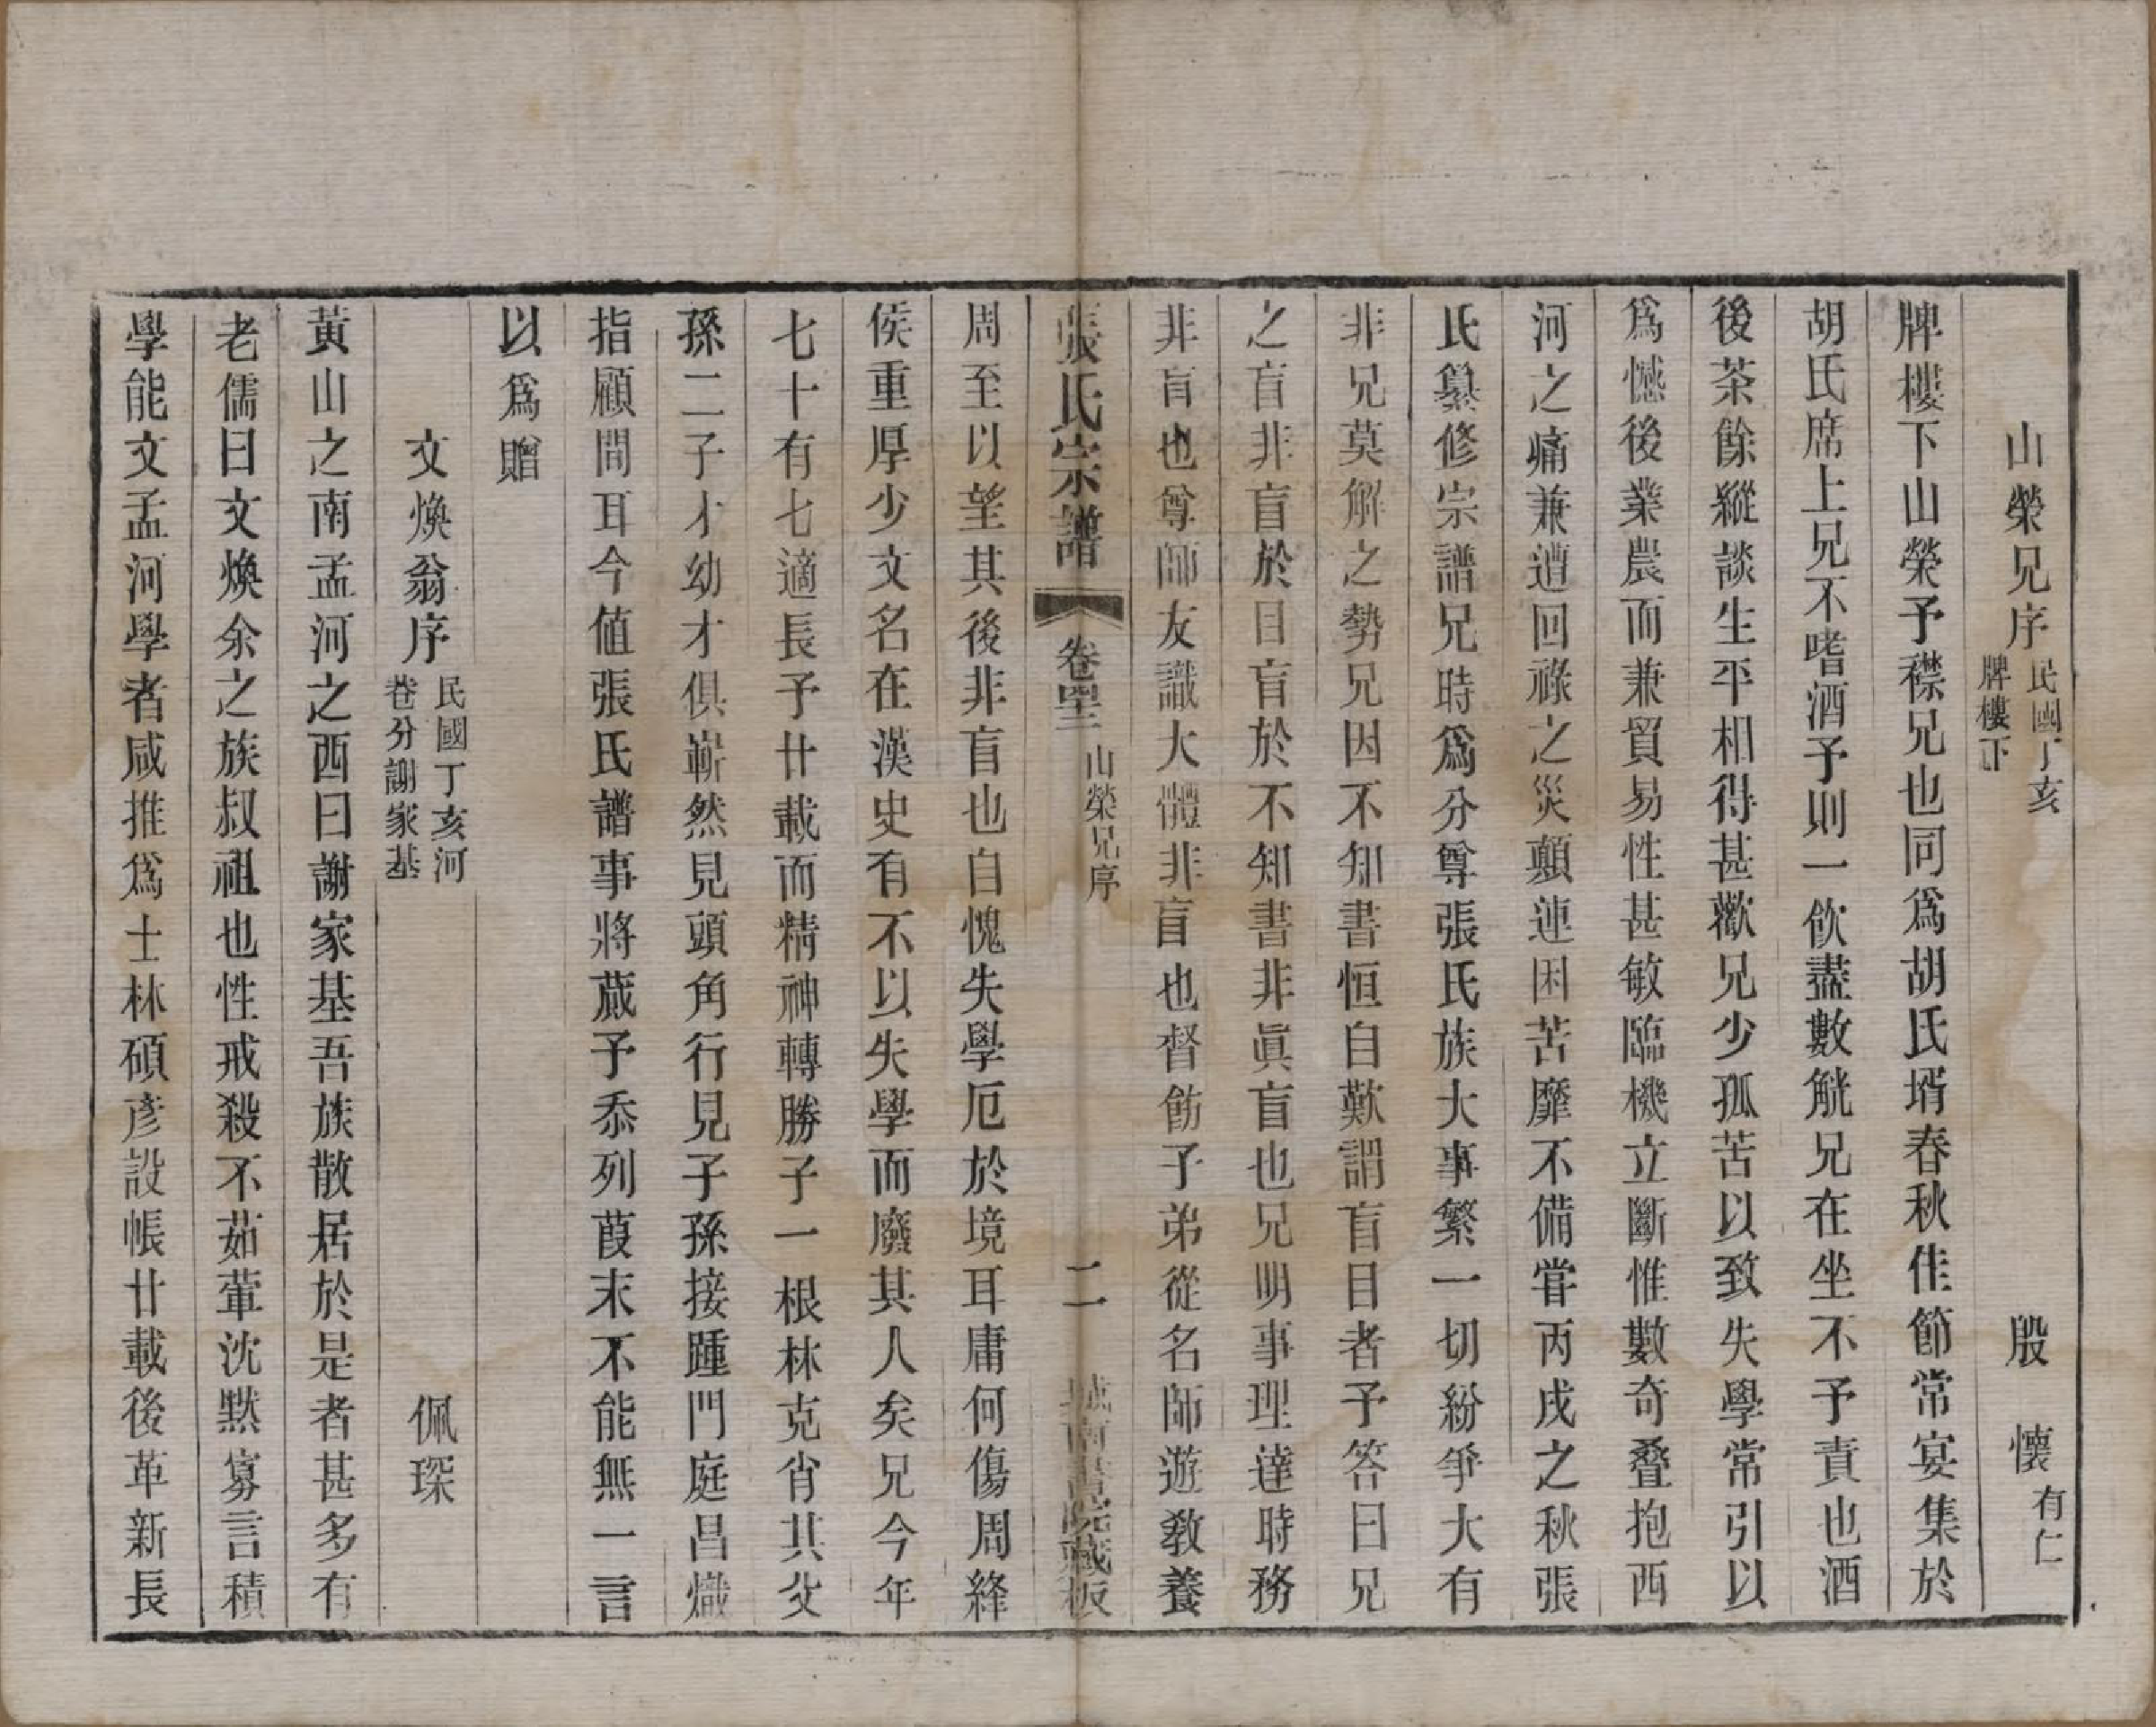 山榮兄序 民國丁亥 牌樓下 殷懷 有仁
牌樓下山榮予襟兄也同爲胡氏壻春秋佳節常宴集於
胡氏席上兄不嗜酒予則一飲盡數觥兄在坐不予責也酒
後茶餘縱談生平相得甚歡兄少孤苦以致失學常引以
爲憾後業農而兼貿易性甚敏臨機立斷惟數奇叠抱西
河之痛兼遭回祿之災顛連困苦靡不備嘗丙戌之秋張
氏纂修宗譜兄時爲分尊張氏族大事繁一切紛爭大有
非兄莫解之勢兄因不知書恒自歎謂盲目者予答曰兄
之盲非盲於目盲於不知書非眞盲也兄明事理達時務
非盲也尊師友識大體非盲也督飭子弟從名師遊教養
張氏宗譜 卷 山榮兄序 二 藏板
周至以望其後非盲也自愧失學厄於境耳庸何傷周絳
侯重厚少文名在漢史有不以失學而廢其人矣兄今年
七十有七適長予廿載而精神轉勝子一根林克肖其父
孫二子才幼才俱嶄然見頭角行見子孫接踵門庭昌熾
指顧間耳今值張氏譜事將蕆予忝列葭末不能無一言
以爲贈
文煥翁序 民國丁亥河 卷分謝家基 佩琛
黃山之南孟河之西曰謝家基吾族散居於是者甚多有
老儒曰文煥余之族叔祖也性戒殺不茹葷沈默寡言積
學能文孟河學者咸推爲士林碩彥設帳廿載後革新長